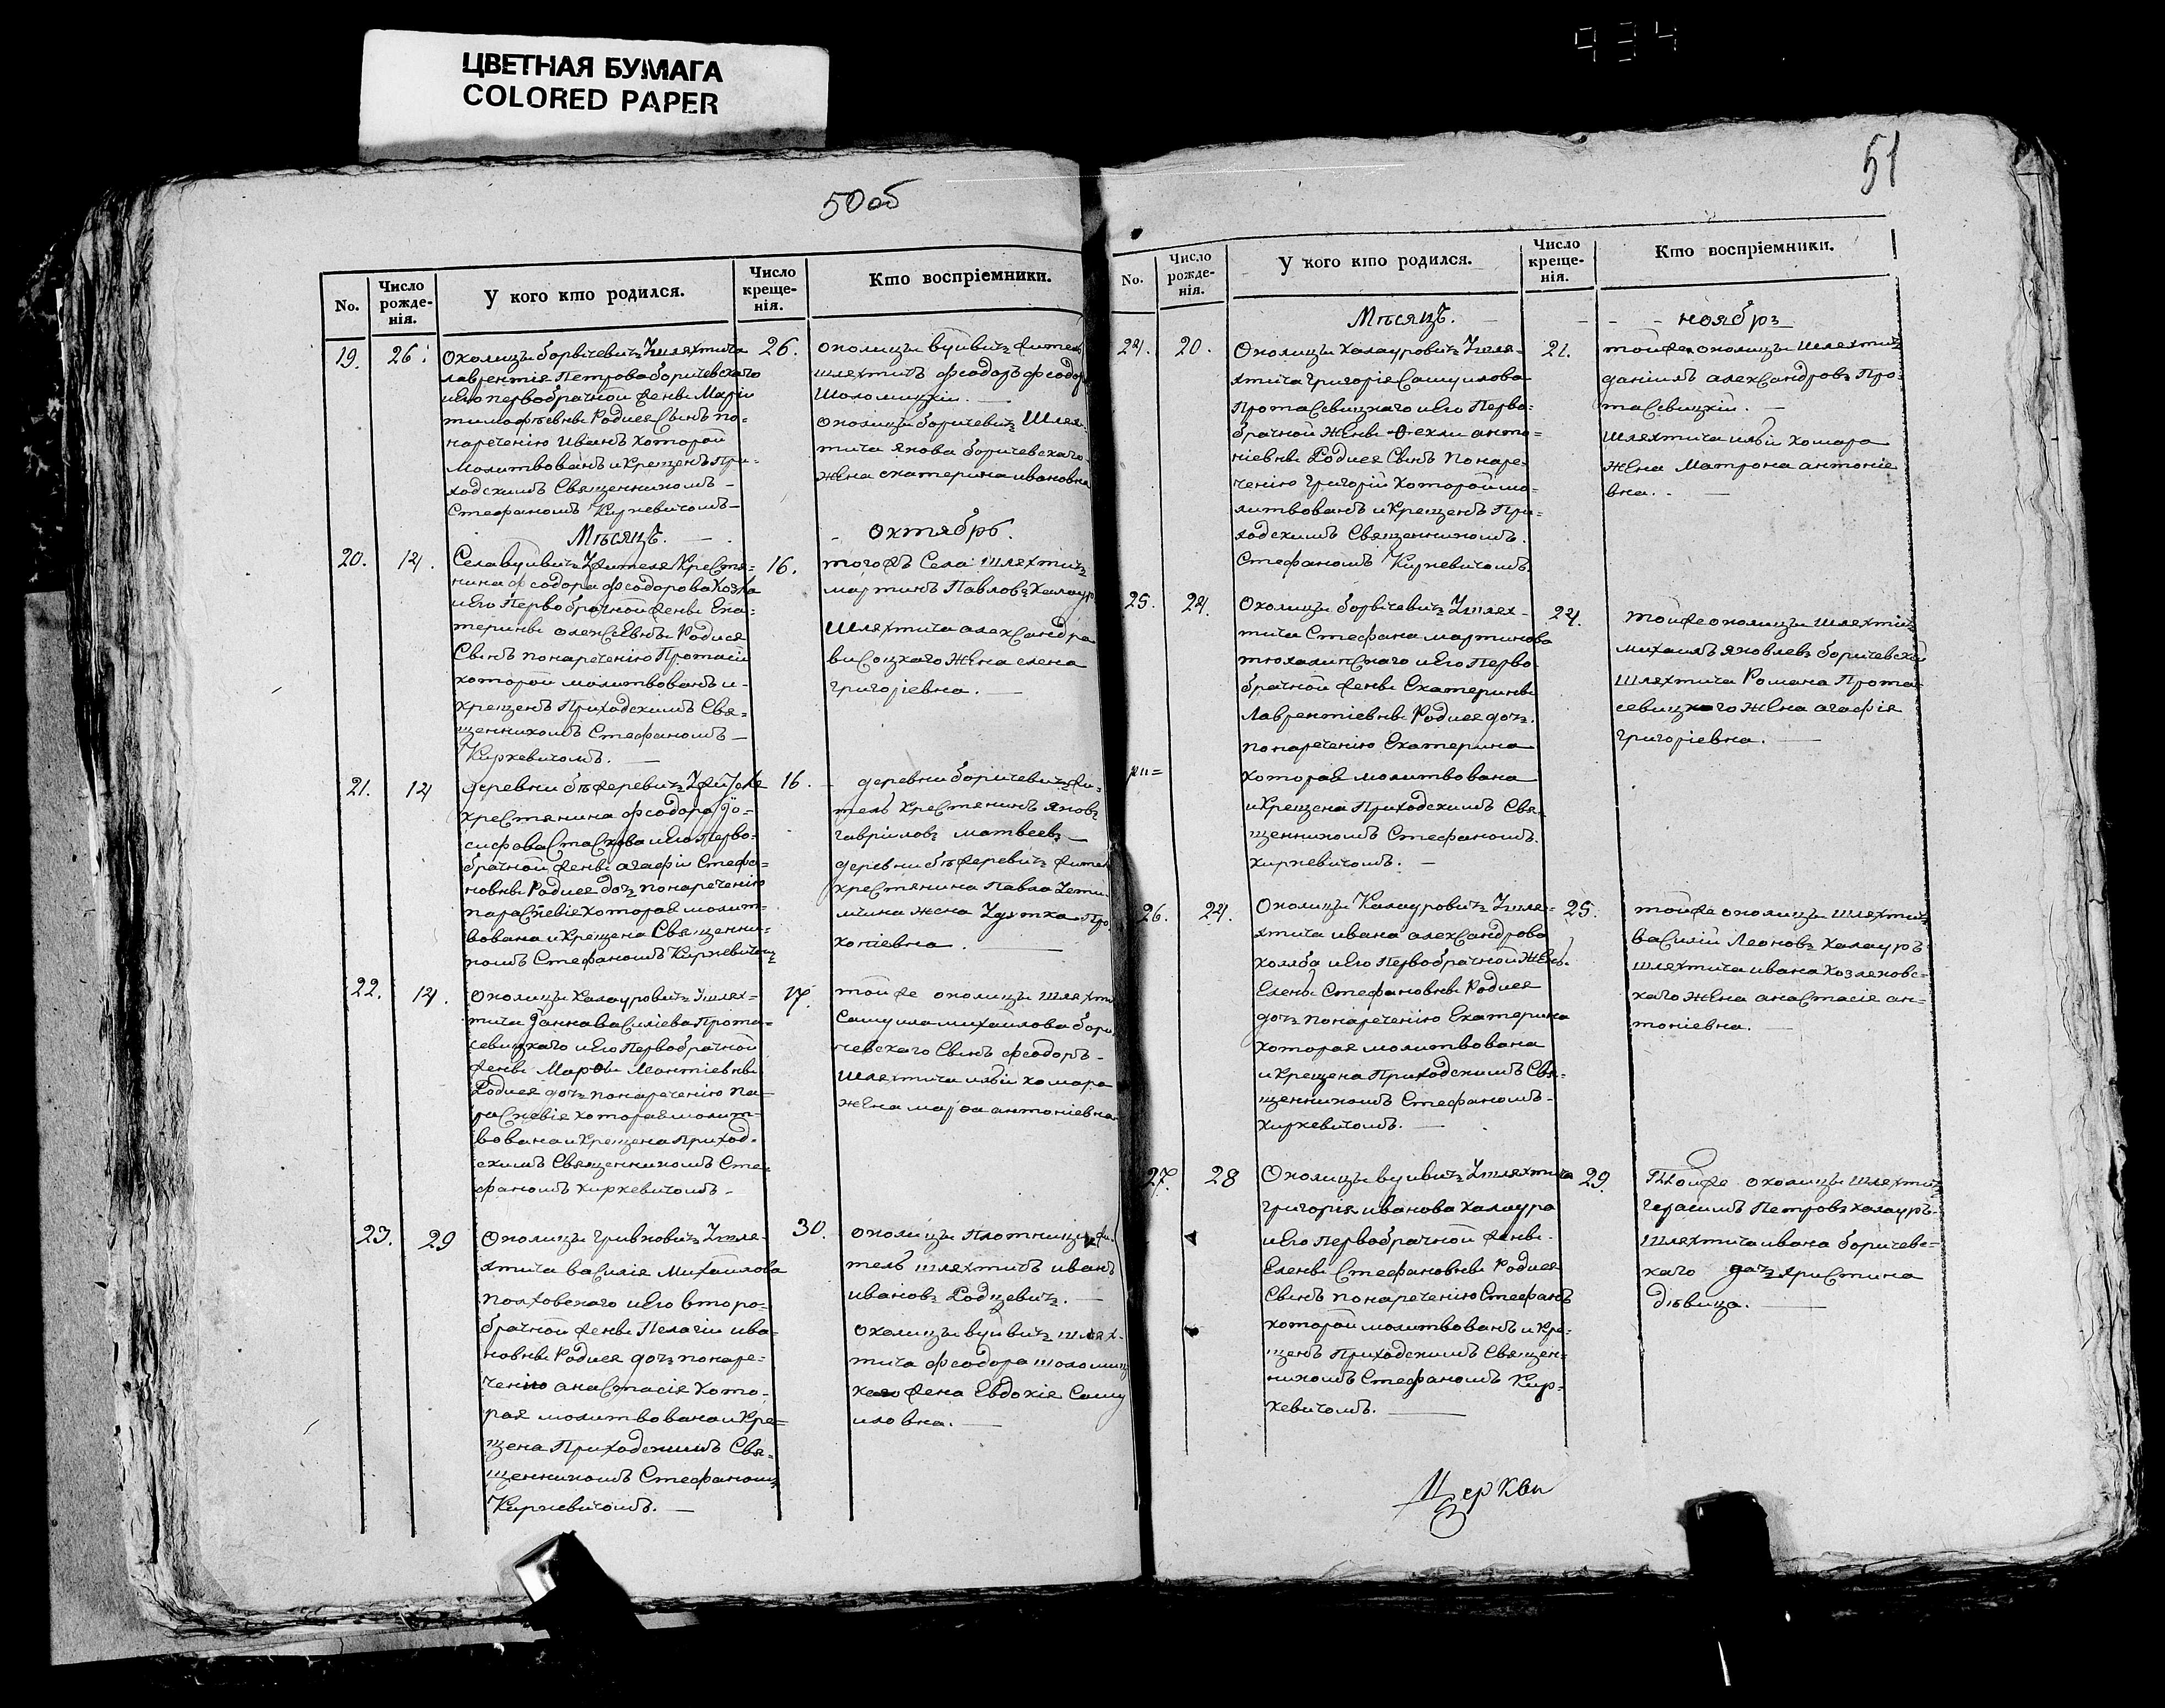 ЦВЕТНАЯ БУМАГА
COLORED PAPER
934
50об
No.
Число рожде-нія.
У кого кто родился.
Число креще-нія.
Кто воспріемники.
19.
26.
Околицы боричевичъ Ушляхтича
лаврентія Петрова боричевскаго
иего первобрачной жены Маріи
тимофѣевны Родися Сынъ по-
нареченію Иванъ который
Молитвованъ и Крещенъ При-
ходскимъ Священникомъ
Стефаномъ Киркевичомъ
26.
околицы вуивичъ житель
шляхтичъ феодоръ феодор
Шоломицкій.
околицы боричевичъ Шлях-
тича Якова боричевскаго
Жена екатерина ивановна
Мѣсяцъ.
октябрь.
20.
14.
Села вуивичъ Ужителя Крестя-
нина феодора феодорова
иего Первобрачной жены Ека-
терины алексѣевны Родися
Сынъ понареченію Протасій
который молитвованъ и
крещенъ Приходскимъ Свя-
щенникомъ Стефаномъ
Киркевичомъ.
16.
тогожъ Села Шляхтичъ
мартинъ Павловъ Халаур
Шляхтича александра
висоцкаго Жена елена
григоріевна.
21.
14
деревни бѣжеревичъ
крестянина феодора Іо-
сифова Стаскова иего Перво-
брачной жены агафіи Стефа-
новны Родися дочъ понареченію
параскевіе которая молит-
вована и крещена Священни-
комъ Стефаномъ Киркевичомъ
16.
деревни боричевичъ жи-
тель крестенинъ яковъ
гавріиловъ матвеевъ
деревни бѣжеревичъ жител
крестянина Павла
жена Про
копіевна.
22.
14.
Околицы Калауровичъ Ушлях-
тича Іанна василіева Прота-
севицкаго иего Первобрачной
жены Марѳы Леонтіевны
Родися дочъ понареченію па-
раскевіе которая молит-
вована и крещена приход-
скимъ Священникомъ Сте-
фаномъ киркевичомъ
17.
тойже околицы шляхти
Самуила михайлова бори
чевскаго Сынъ феодоръ
Шляхтича иліи комара
Жена марѳа антоніевна
23.
29
Околицы гривковичъ Ушля-
хтича василія Михайлова
Полховскаго иего второ-
брачной жены Пелагіи ива-
новны Родися дочъ понаре-
ченію анастасія кото-
рая молитвована и кре-
щена Приходскимъ Свя-
щенникомъ Стефаномъ
Киркевичомъ.
30.
околицы Плотницы жи-
тель шляхтичъ иванъ
ивановъ Родцевичъ.
Околицы вуивичъ шлях-
тича феодора шоломиц
каго жена Евдокіе Саму
иловна.
51
No.
Число рожде-нія.
У кого кто родился.
Число креще-нія.
Кто воспріемники.
Мѣсяцъ.
ноябрь
24.
20.
Околицы Калауровичъ Ушля-
хтича григорія Самуилова
Протасевицкаго иего Перво-
брачной Жены Ѳекли анто-
ніевны Родися Сынъ Понаре-
ченію григорій который мо-
литвованъ и Крещенъ При-
ходскимъ Священникомъ.
Стефаномъ Киркевичомъ.
21.
тойже околицы шляхтичъ
даніилъ александровъ Про-
тасевицкій.
Шляхтича иліи комара
Жена Матрона антоніе
вна.
25.
24.
Околицы боричевичъ Ушлях-
тича Стефана мартинова
тюхалинскаго иего Перво-
брачной жены Екатерины
Лаврентіевны Родися дочъ.
понареченію Екатерина
которая молитвована
и Крещена Приходскимъ Свя-
щенникомъ Стефаномъ.
киркевичомъ.
24.
тойже околицы шляхтичъ
михаилъ яковлевъ боричевскій
Шляхтича Романа Прота-
севицкаго Жена агафія
григоріевна.
26.
24.
Околицы Калауровичъ Ушля-
хтича ивана александрова
холяба иего Первобрачной Жены
Елены Стефановны Родися
дочъ понареченію Екатерина
которая молитвована
и Крещена Приходскимъ Свя-
щенникомъ Стефаномъ
киркевичомъ.
25.
тойже околицы шляхтичъ
василій Леоновъ халауръ
шляхтича ивана козляковс-
каго Жена анастасія ан-
тоніевна.
27.
28
Околицы вуивичъ Ушляхтича
григорія иванова халаура
иего первобрачной жены
Елены Стефановны Родися
Сынъ понареченію Стефанъ
который молитвованъ и кре-
щенъ Приходскимъ Священ-
никомъ Стефаномъ Кир-
кевичомъ.
29.
Тойже околицы шляхтичъ
герасимъ Петровъ халауръ
Шляхтича ивана боричевс-
каго дочъ христина
дѣвица.
Церкви